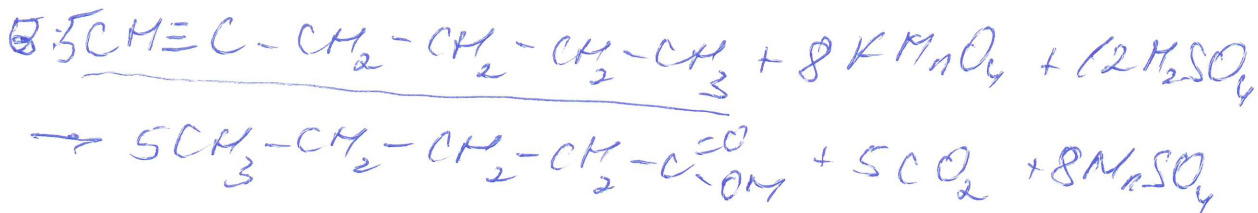 5CH≡C-CH₂-CH₂-CH₂-CH₃ + 8KMnO₄ + 12H₂SO₄
→ 5CH₃-CH₂-CH₂-CH₂-C=O-OH + 5CO₂ + 8MnSO₄